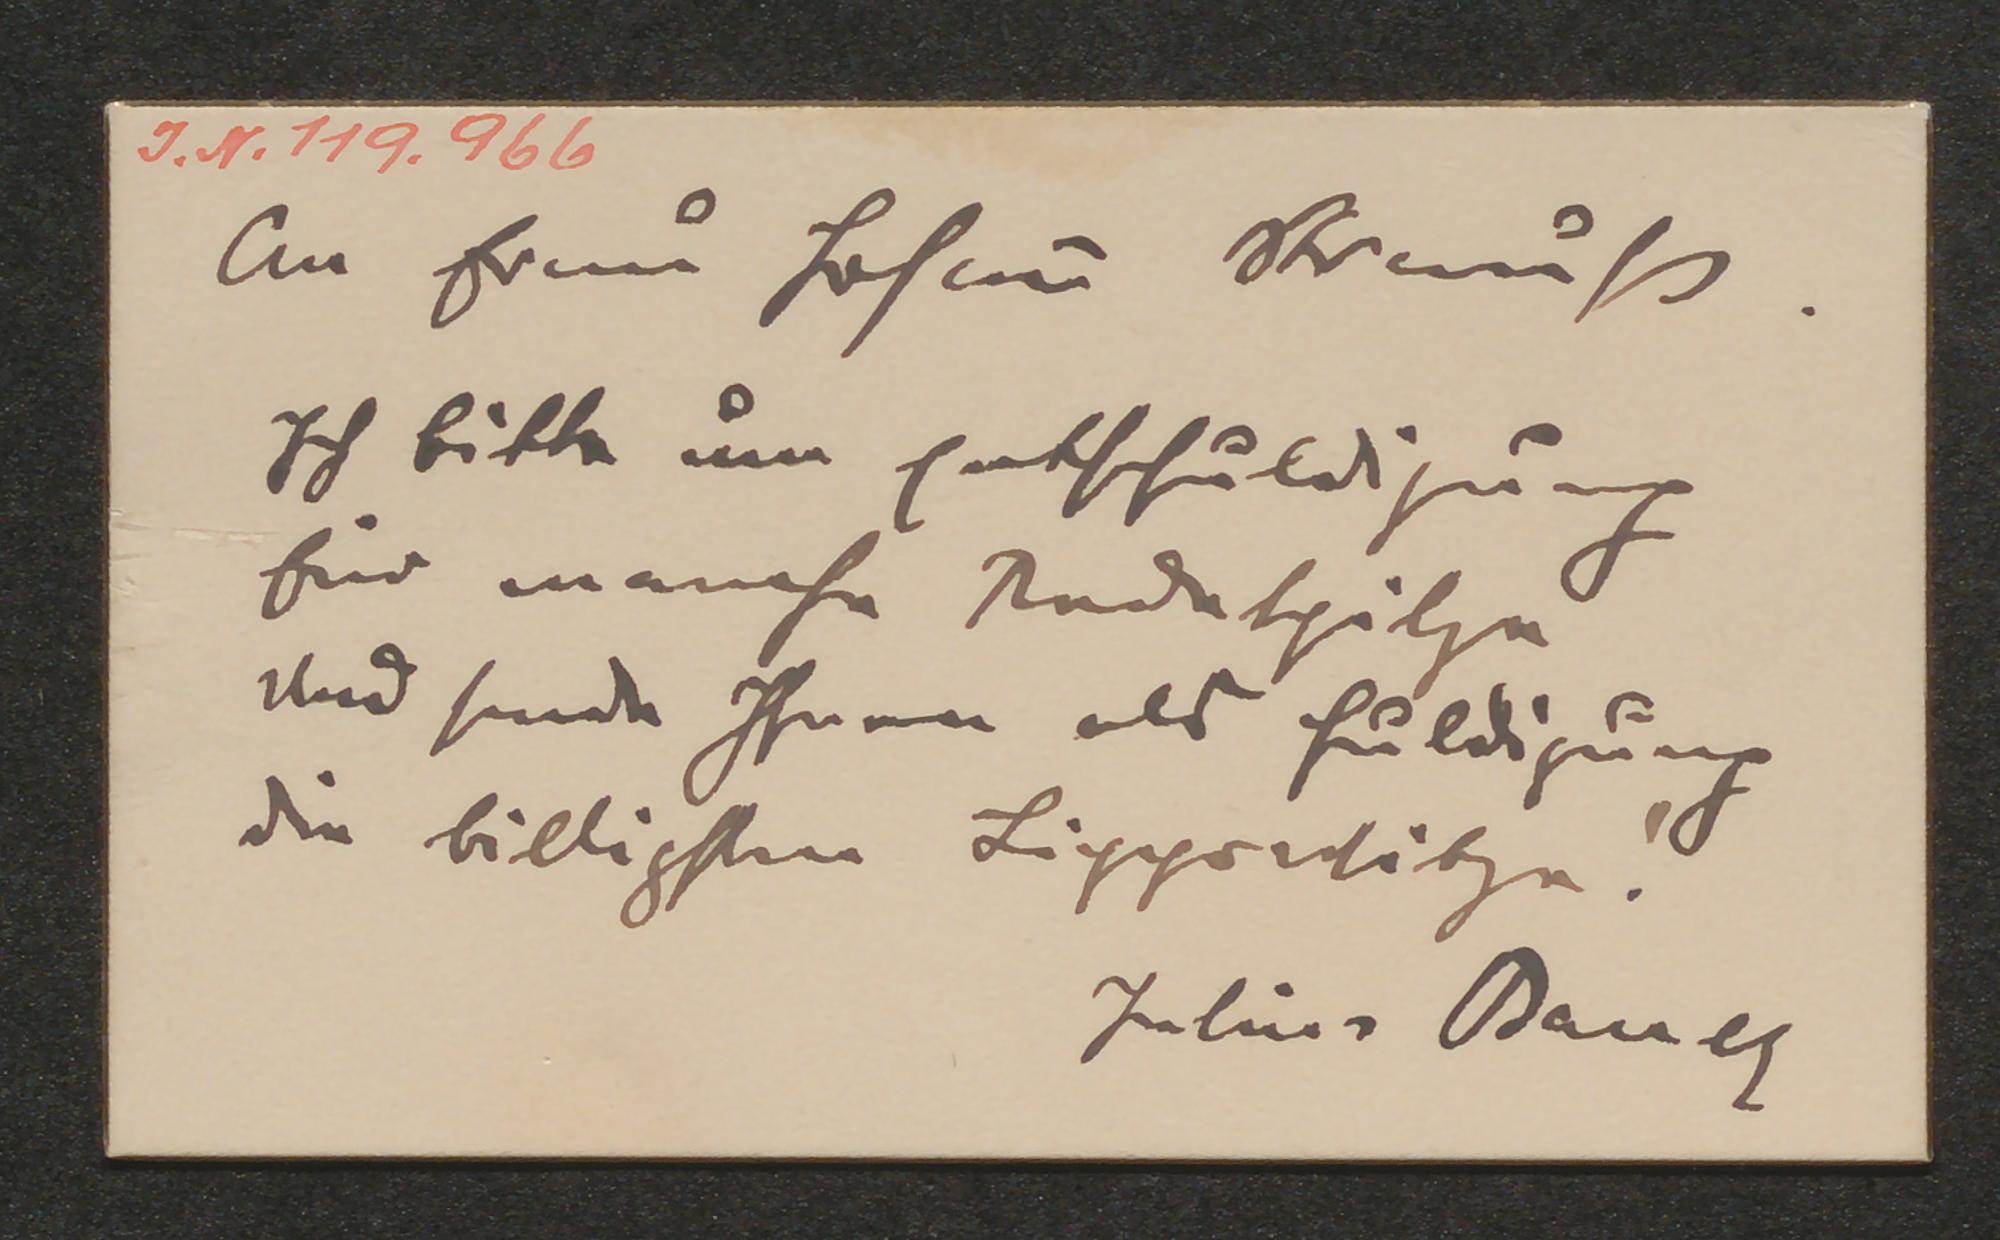 I.N. 119.966
An Frau Johann Strauß.
Ich bitte um Entschuldigung
für manche
Und sende Ihnen als Huldigung
die billigsten Lippowitze!
Julius Bauer